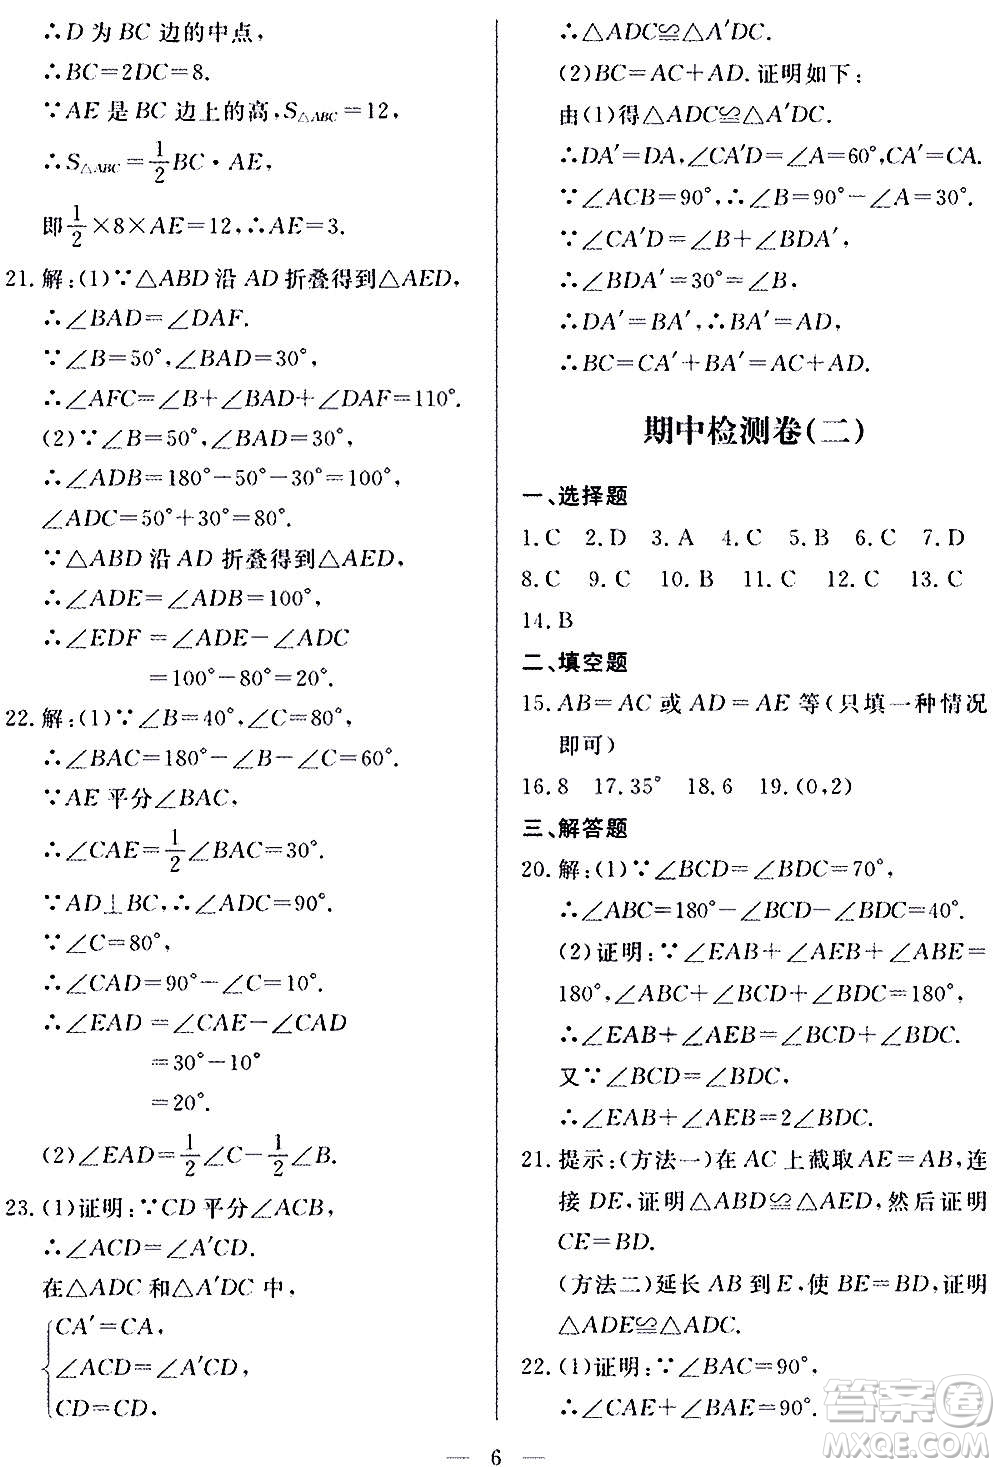 ∴D 为 BC 边的中点,
∴BC=2DC=8.
∵AE 是 BC 边上的高,S△ABC=12,
∴S△ABC=1/2BC·AE,
即1/2×8×AE=12,∴AE=3.
21.解:(1)∵△ABD沿 AD 折叠得到△AED,
∴∠BAD=∠DAF.
∵∠B=50°,∠BAD=30°,
∴∠AFC=∠B+∠BAD+∠DAF=110°.
(2)∵∠B=50°,∠BAD=30°,
∴∠ADB=180°-50°-30°=100°,
∠ADC=50°+30°=80°.
∵△ABD沿 AD 折叠得到△AED,
∴∠ADE=∠ADB=100°,
∴∠EDF=∠ADE-∠ADC
=100°-80°=20°.
22.解:(1)∵∠B=40°,∠C=80°,
∴∠BAC=180°-∠B-∠C=60°.
∵AE 平分∠BAC,
∴∠CAE=1/2∠BAC=30°.
∵AD⊥BC,∴∠ADC=90°.
∵∠C=80°,
∴∠CAD=90°-∠C=10°.
∴∠EAD=∠CAE-∠CAD
=30°-10°
=20°.
(2)∠EAD=1/2∠C-1/2∠B.
23.(1)证明:∵CD平分∠ACB,
∴∠ACD=∠A′CD.
在△ADC 和△A′DC 中,
CA′=CA,
∠ACD=∠A′CD,
CD=CD,
∴△ADC≌△A′DC.
(2)BC=AC+AD.证明如下:
由(1)得△ADC≌△A′DC.
∴DA′=DA,∠CA′D=∠A=60°,CA′=CA.
∵∠ACB=90°,∴∠B=90°-∠A=30°.
∵∠CA′D=∠B+∠BDA′,
∴∠BDA′=30°=∠B.
∴DA′=BA′,∴BA′=AD,
∴BC=CA′+BA′=AC+AD.
期中检测卷(二)
一、选择题
1.C 2.D 3.A 4.C 5.B 6.C 7.D
8.C 9.C 10.B 11.C 12.C 13.C
14.B
二、填空题
15.AB=AC 或 AD=AE 等(只填一种情况
即可)
16.8 17.35° 18.6 19.(0,2)
三、解答题
20.解:(1)∵∠BCD=∠BDC=70°,
∴∠ABC=180°-∠BCD-∠BDC=40°.
(2)证明:∵∠EAB+∠AEB+∠ABE=
180°,∠ABC+∠BCD+∠BDC=180°,
∴∠EAB+∠AEB=∠BCD+∠BDC.
又∵∠BCD=∠BDC,
∴∠EAB+∠AEB=2∠BDC.
21.提示:(方法一)在 AC 上截取 AE=AB,连
接 DE,证明△ABD≌△AED,然后证明
CE=BD.
(方法二)延长 AB 到 E,使 BE=BD,证明
△ADE≌△ADC.
22.(1)证明:∵∠BAC=90°,
∴∠CAE+∠BAE=90°.
6
答案卷
MXQE.COM